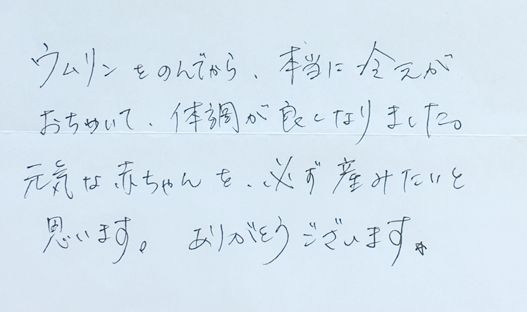 ウムリンをのんでから、本当に冷えが
おちついて、体調が良くなりました。
元気な赤ちゃんを、必ず産みたいと
思います。 ありがとうございます。